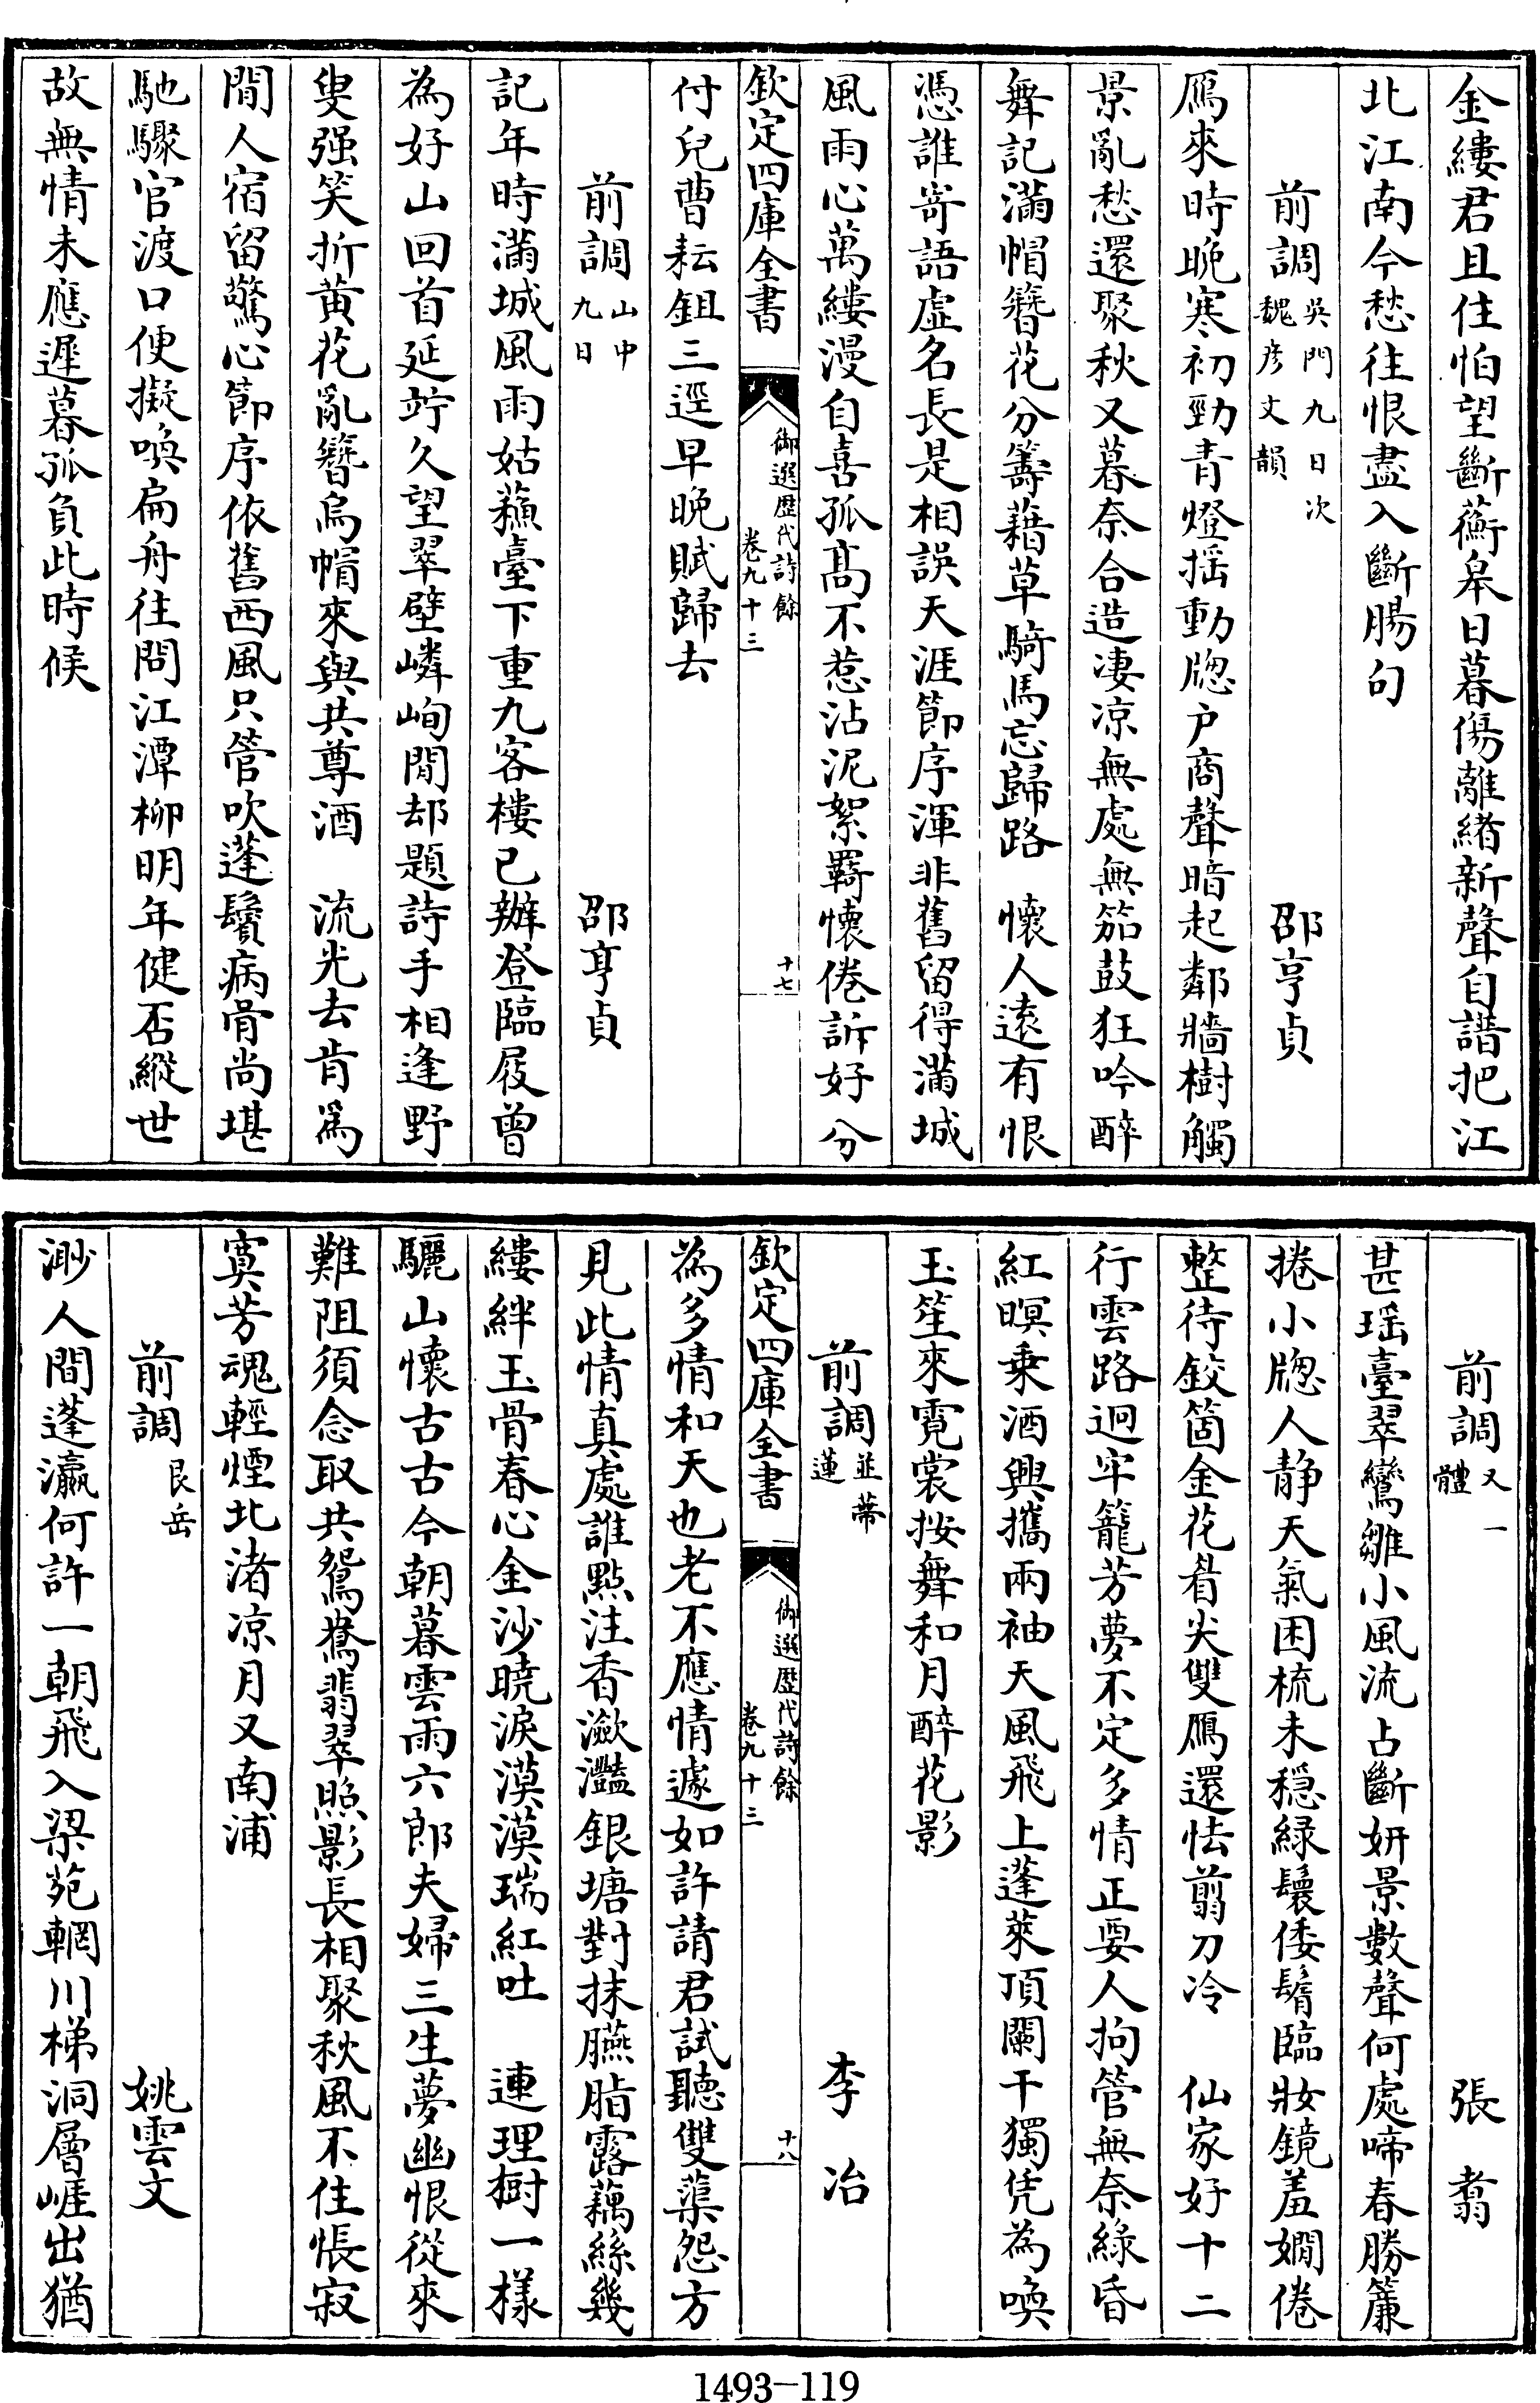 金縷君且住怕望斷蘅皋日暮傷離緒新聲自譜把江
北江南今愁往恨盡入斷腸句
前調吳門九日次魏彦文韻　邵亨貞
鴈來時晩寒初勁青燈揺動牕户商聲暗起鄰牆樹觸
景亂愁還聚秋又暮奈合造凄凉無處無笳鼓狂吟醉
舞記滿帽簪花分籌藉草騎馬忘歸路　懷人逺有恨
憑誰寄語虚名長是相誤天涯節序渾非舊留得滿城
風雨心萬縷漫自喜孤髙不惹沾泥絮羇懷倦訴好分
欽定四庫全書　御選歴代詩餘卷九十三　十七
付兒曹耘鉏三逕早晩賦歸去
前調山中九日　邵亨貞
記年時滿城風雨姑蘇臺下重九客樓已辦登臨屐曾
為好山回首延竚久望翠壁嶙峋閒却題詩手相逢野
叟强笑折黄花亂簪烏帽來與共尊酒　流光去肯爲
閒人宿留驚心節序依舊西風只管吹蓬鬢病骨尚堪
馳驟官渡口便擬喚扁舟往問江潭柳明年健否縱世
故無情未應遲暮孤負此時候
前調又一體　張翥
甚瑶臺翠鸞雛小風流占斷妍景數聲何處啼春勝簾
捲小牕人静天氣困梳未穏緑鬟倭鬌臨妝鏡羞嫺倦
整待鉸箇金花㸔尖雙鴈還怯翦刀冷　仙家好十二
行雲路迥牢籠芳夢不定多情正要人拘管無奈緑昏
紅暝乗酒興攜兩袖天風飛上蓬萊頂闌干獨凭為喚
玉笙來霓裳按舞和月醉花影
前調並蒂蓮　李冶
欽定四庫全書　御選歴代詩餘卷九十三　十八
為多情和天也老不應情遽如許請君試聽雙蕖怨方
見此情真處誰點注香瀲灩銀塘對抹臙脂露藕絲幾
縷絆玉骨春心金沙曉淚漠漠瑞紅吐　連理樹一様
驪山懷古古今朝暮雲雨六郎夫婦三生夢幽恨從來
難阻須念取共鴛鴦翡翠照影長相聚秋風不住悵寂
寞芳魂輕煙北渚凉月又南浦
前調艮岳　姚雲文
渺人間蓬瀛何許一朝飛入梁苑輞川梯洞層崕出猶
1493-119